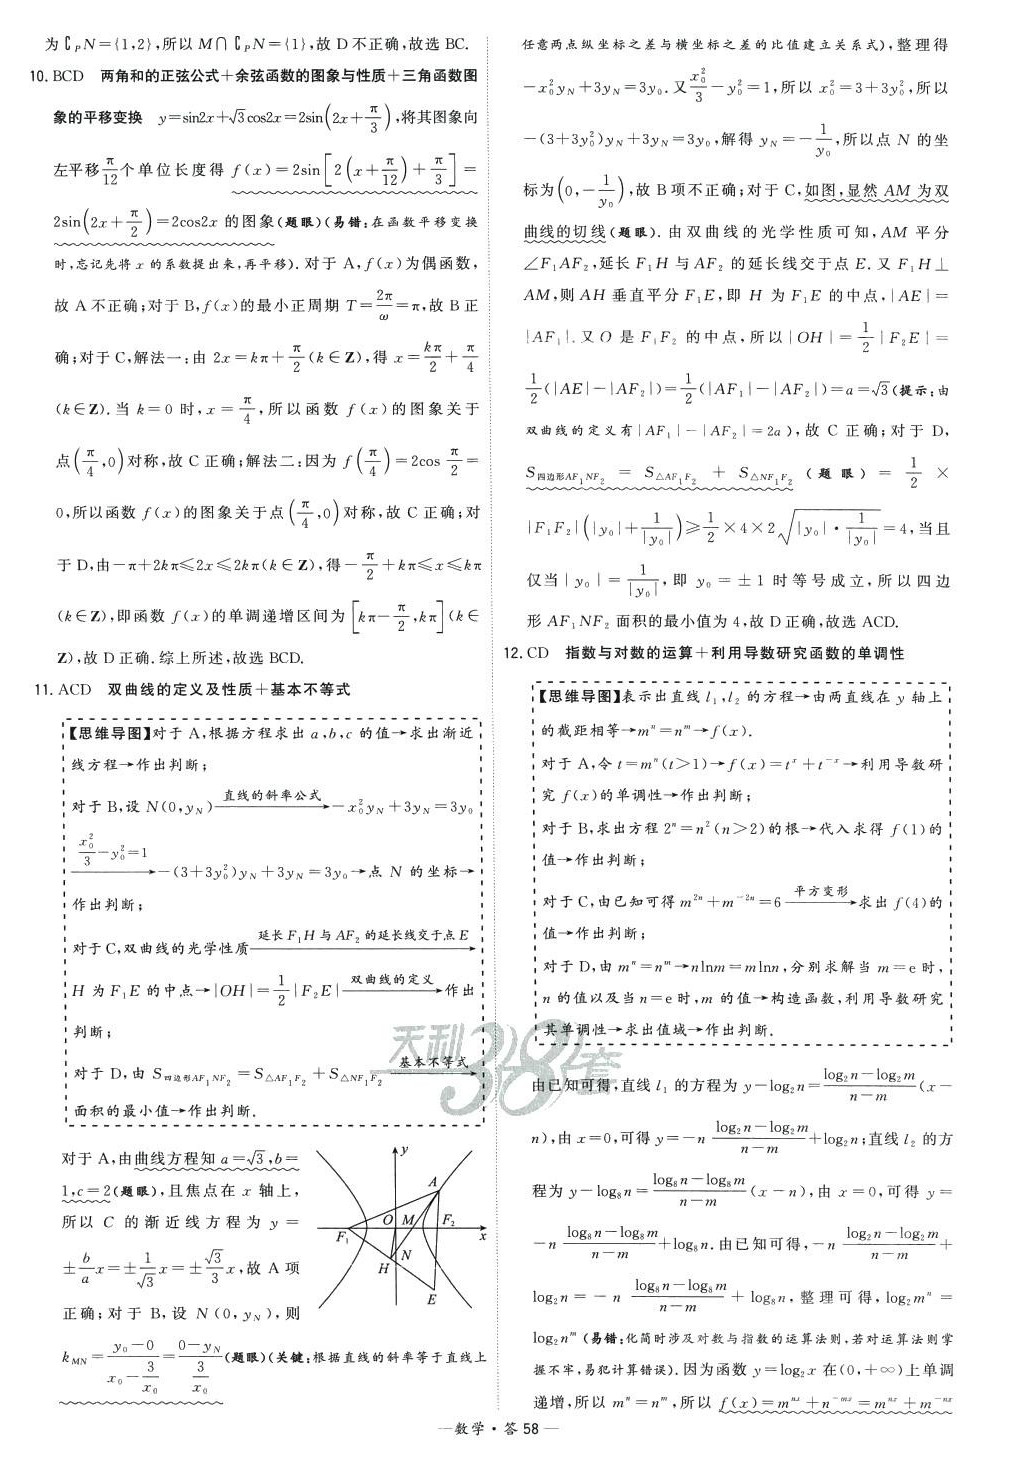 为∁PN={1,2},所以 M∩∁PN={1},故 D 不正确,故选 BC.
10. BCD 两角和的正弦公式+余弦函数的图象与性质+三角函数图
象的平移变换 y=sin2x+√3cos2x=2sin(2x+π/3),将其图象向
左平移π/12个单位长度得 f(x)=2sin[2(x+π/12)+π/3]=
2sin(2x+π/2)=2cos2x 的图象(题眼)(易错:在函数平移变换
时,忘记先将 x 的系数提出来,再平移). 对于 A,f(x)为偶函数,
故 A 不正确;对于 B,f(x)的最小正周期 T=2π/ω=π,故 B 正
确;对于 C,解法一:由 2x=kπ+π/2(k∈Z),得 x=kπ/2+π/4
(k∈Z). 当 k=0 时,x=π/4,所以函数 f(x)的图象关于
点(π/4,0)对称,故 C 正确;解法二:因为 f(π/4)=2cos π/2=
0,所以函数 f(x)的图象关于点(π/4,0)对称,故 C 正确;对
于 D,由-π+2kπ≤2x≤2kπ(k∈Z),得-π/2+kπ≤x≤kπ
(k∈Z),即函数 f(x)的单调递增区间为[kπ-π/2,kπ](k∈
Z),故 D 正确. 综上所述,故选 BCD.
11. ACD 双曲线的定义及性质+基本不等式
【思维导图】对于 A,根据方程求出 a,b,c 的值→求出渐近
线方程→作出判断;
对于 B,设 N(0,yN) 直线的斜率公式→ -x₀²yN+3yN=3y₀
x₀²/3-y₀²=1→ -(3+3y₀²)yN+3yN=3y₀→点 N 的坐标→
作出判断;
对于 C,双曲线的光学性质 延长 F₁H 与 AF₂ 的延长线交于点 E→
H 为 F₁E 的中点→|OH|=1/2|F₂E| 双曲线的定义→作出
判断;
对于 D,由 S四边形AF₁NF₂=S△AF₁F₂+S△NF₁F₂ 基本不等式→
面积的最小值→作出判断.
对于 A,由曲线方程知 a=√3,b=
1,c=2(题眼),且焦点在 x 轴上,
所以 C 的渐近线方程为 y=
±b/a x=±1/√3 x=±√3/3 x,故 A 项
正确;对于 B,设 N(0,yN),则
y
A
O M F₂
F₁ x
H N
E
kMN=(y₀-0)/(x₀-3/x₀)=(0-yN)/(3/x₀)(题眼)(关键:根据直线的斜率等于直线上
任意两点纵坐标之差与横坐标之差的比值建立关系式),整理得
-x₀²yN+3yN=3y₀. 又x₀²/3-y₀²=1,所以 x₀²=3+3y₀²,所以
-(3+3y₀²)yN+3yN=3y₀,解得 yN=-1/y₀,所以点 N 的坐
标为(0,-1/y₀),故 B 项不正确;对于 C,如图,显然 AM 为双
曲线的切线(题眼). 由双曲线的光学性质可知,AM 平分
∠F₁AF₂,延长 F₁H 与 AF₂ 的延长线交于点 E. 又 F₁H⊥
AM,则 AH 垂直平分 F₁E,即 H 为 F₁E 的中点,|AE|=
|AF₁|. 又 O 是 F₁F₂ 的中点,所以|OH|=1/2|F₂E|=
1/2(|AE|-|AF₂|)=1/2(|AF₁|-|AF₂|)=a=√3(提示:由
双曲线的定义有|AF₁|-|AF₂|=2a),故 C 正确;对于 D,
S四边形AF₁NF₂ = S△AF₁F₂ + S△NF₁F₂ (题眼) = 1/2 ×
|F₁F₂|(|y₀|+1/|y₀|)≥1/2×4×2√(|y₀|·1/|y₀|)=4,当且
仅当|y₀|=1/|y₀|,即 y₀=±1 时等号成立,所以四边
形 AF₁NF₂ 面积的最小值为 4,故 D 正确,故选 ACD.
12. CD 指数与对数的运算+利用导数研究函数的单调性
【思维导图】表示出直线 l₁,l₂ 的方程→由两直线在 y 轴上
的截距相等→mⁿ=nᵐ→f(x).
对于 A,令 t=mⁿ(t>1)→f(x)=tˣ+t⁻ˣ→利用导数研
究 f(x)的单调性→作出判断;
对于 B,求出方程 2ⁿ=n²(n>2)的根→代入求得 f(1)的
值→作出判断;
对于 C,由已知可得 m²ⁿ+m⁻²ⁿ=6 平方变形→求出 f(4)的
值→作出判断;
对于 D,由 mⁿ=nᵐ→nlnm=mlnn,分别求解当 m=e 时,
n 的值以及当 n=e 时,m 的值→构造函数,利用导数研究
其单调性→求出值域→作出判断.
由已知可得,直线 l₁ 的方程为 y-log₂n=(log₂n-log₂m)/(n-m)(x-
n),由 x=0,可得 y=-n (log₂n-log₂m)/(n-m)+log₂n;直线 l₂ 的方
程为 y-log₈n=(log₈n-log₈m)/(n-m)(x-n),由 x=0,可得 y=
-n (log₈n-log₈m)/(n-m)+log₈n. 由已知可得,-n (log₂n-log₂m)/(n-m)+
log₂n=-n (log₈n-log₈m)/(n-m)+log₈n,整理可得,log₂mⁿ=
log₂nᵐ(易错:化简时涉及对数与指数的运算法则,若对运算法则掌
握不牢,易犯计算错误). 因为函数 y=log₂x 在(0,+∞)上单调
递增,所以 mⁿ=nᵐ,所以 f(x)=mⁿˣ+n⁻ᵐˣ=mⁿˣ+m⁻ⁿˣ
天利38套
—数学·答 58—